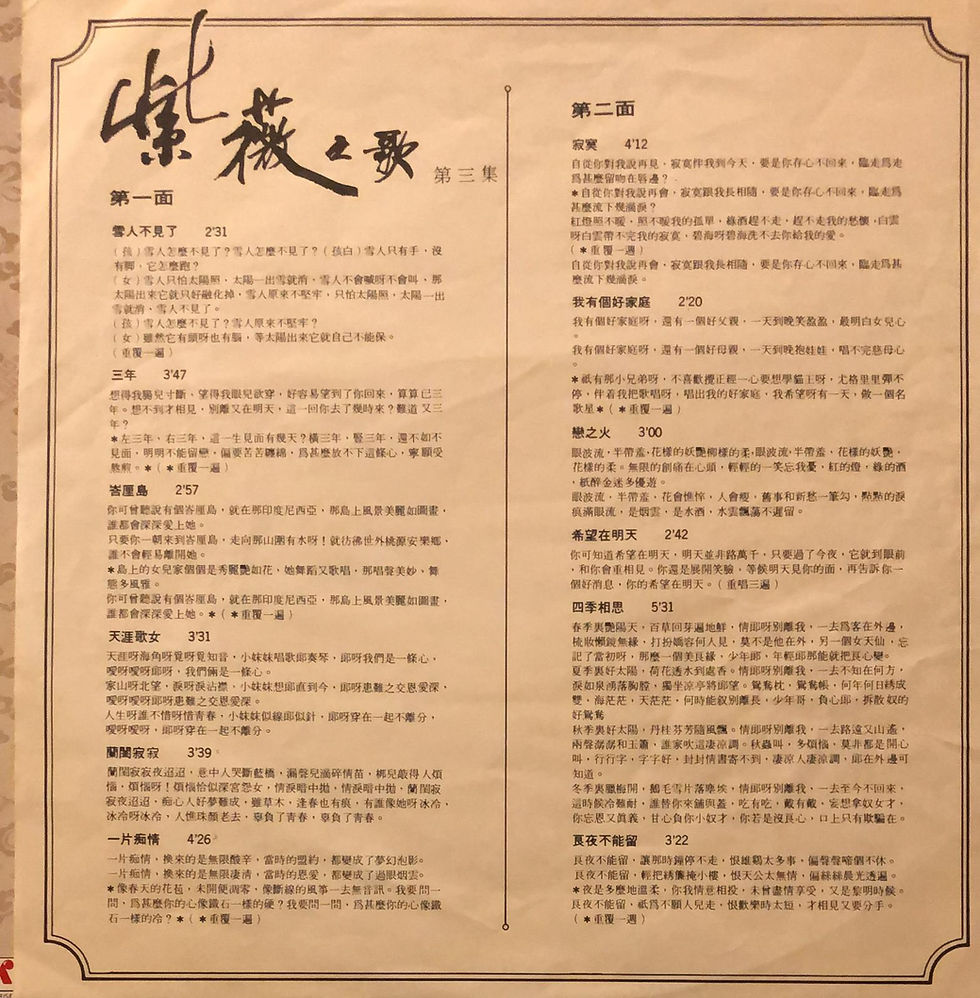 紫薇之歌 第三集
第一面
雪人不見了 2'31
(孩)雪人怎麼不見了？雪人怎麼不見了？(孩白)雪人只有手，沒
有腳，它怎麼跑？
(女)雪人只怕太陽照，太陽一出雪就消，雪人不會喊呀不會叫，那
太陽出來它就只好融化掉，雪人原來不堅牢，只怕太陽照，太陽一出
雪就消，雪人不見了。
(孩)雪人怎麼不見了？雪人原來不堅牢？
(女)雖然它有頭呀也有腦，等太陽出來它就自己不能保。
(重覆一遍)
三年 3'47
想得我腸兒寸斷、望得我眼兒欲穿，好容易望到了你回來，算算已三
年。想不到才相見，別離又在明天，這一回你去了幾時來？難道又三
年？
＊左三年、右三年，這一生見面有幾天？橫三年，豎三年，還不如不
見面，明明不能留戀，偏要苦苦纏綿，爲甚麼放不下這條心，寧願受
熬煎。＊(＊重覆一遍)
峇厘島 2'57
你可曾聽說有個峇厘島，就在那印度尼西亞，那島上風景美麗如圖畫，
誰都會深深愛上她。
只要你一朝來到峇厘島，走向那山圍有水呀！就彷彿世外桃源安樂鄉，
誰不會輕易離開她。
＊島上的女兒家個個是秀麗艷如花、她舞蹈又歌唱，那唱聲美妙、舞
態多風雅。
你可曾聽說有個峇厘島，就在那印度尼西亞，那島上風景美麗如圖畫，
誰都會深深愛上她。＊(＊重覆一遍)
天涯歌女 3'31
天涯呀海角呀覓呀覓知音，小妹妹唱歌郎奏琴，郎呀我們是一條心，
噯呀噯呀郎呀，我們倆是一條心。
家山呀北望，淚呀淚沾襟，小妹妹想郎直到今，郎呀患難之交恩愛深，
噯呀噯呀郎呀患難之交恩愛深。
人生呀誰不惜呀惜青春，小妹妹似線郎似針，郎呀穿在一起不離分，
噯呀噯呀，郎呀穿在一起不離分。
蘭閨寂寂 3'39
蘭閨寂寂夜迢迢，意中人哭斷藍橋，漏聲兒滴碎情苗，梆兒敲得人煩
惱，煩惱呀！煩惱恰似深宮怨女，情淚暗中拋，情淚暗中拋，蘭閨寂
寂夜迢迢，痴心人好夢難成，雖草木，逢春也有痕，有誰像她呀冰冷，
冰冷呀冰冷，人憔珠顏老去，辜負了青春，辜負了青春。
一片痴情 4'26
一片痴情，換來的是無限酸辛，當時的盟約，都變成了夢幻泡影。
一片痴情，換來的是無限凄清，當時的恩愛，都變成了過眼烟雲。
＊像春天的花苞，未開便凋零，像斷線的風箏一去無音訊。我要問一
問，爲甚麼你的心像鐵石一樣的硬？我要問一問，爲甚麼你的心像鐵
石一樣的冷？＊(＊重覆一遍)
第二面
寂寞 4'12
自從你對我說再見，寂寞伴我到今天，要是你存心不回來，臨走爲走
爲甚麼留吻在唇邊？
＊自從你對我說再會，寂寞跟我長相隨，要是你存心不回來，臨走爲
甚麼流下幾滴淚？
紅燈照不暖，照不暖我的孤單，綠酒趕不走，趕不走我的愁懷，白雲
呀白雲帶不完我的寂寞，碧海呀碧海洗不去你給我的愛。
(＊重覆一週)
自從你對我說再會，寂寞跟我長相隨，要是你存心不回來，臨走爲甚
麼流下幾滴淚。
我有個好家庭 2'20
我有個好家庭呀，還有一個好父親，一天到晚笑盈盈，最明白女兒心
。
我有個好家庭呀，還有一個好母親，一天到晚抱娃娃，唱不完慈母心
。
＊祇有那小兄弟呀，不喜歡攪正經一心要想學貓王呀，尤格里里彈不
停，伴着我把歌唱呀，唱出我的好家庭，我希望呀有一天，做一個名
歌星＊(＊重覆一遍)
戀之火 3'00
眼波流，半帶羞，花樣的妖艷柳樣的柔，眼波流，半帶羞，花樣的妖艷，
花樣的柔。無限的創痛在心頭，輕輕的一笑忘我憂，紅的燈，綠的酒
，紙醉金迷多優遊。
眼波流，半帶羞，花會憔悴，人會瘦，舊事和新愁一筆勾，點點的淚
痕滿眼流，是烟雲，是水酒，水雲飄蕩不遲留。
希望在明天 2'42
你可知道希望在明天，明天並非路萬千，只要過了今夜，它就到眼前
，和你會重相見。你還是展開笑臉，等候明天見你的面，再告訴你一
個好消息，你的希望在明天。(重唱三遍)
四季相思 5'31
春季裏艷陽天，百草回芽遍地鮮，情郎呀別離我，一去爲客在外邊，
梳妝懶鏡無緣，打扮嬌容何人見，莫不是他在外，另一個女天仙，忘
記了當初呀，那麼一個美良緣，少年郎，年輕郎那能就把良心變。
夏季裏好太陽，荷花透水到處香。情郎呀別離我，一去不知在何方，
淚如泉湧落胸膛，獨坐涼亭將郎望。鴛鴦枕，鴛鴦帳，何年何日綉成
雙，海茫茫，天茫茫，何時能叙別離長，少年哥，負心郎，拆散奴的
好鴛鴦
秋季裏好太陽，丹桂芬芳隨風飄。情郎呀別離我，一去路遠又山遙，
兩聲潺潺和玉簫，誰家吹這凄涼調。秋蟲叫，多煩惱，莫非都是開心
叫，行行字，字字好，封封情書寄不到，凄涼人凄涼調，郎在外邊可
知道。
冬季裏臘梅開，鵝毛雪片落塵埃，情郎呀別離我，一去至今不回來，
這時候冷難耐，誰替你來鋪與蓋，吃有吃，戴有戴、妄想拿奴女才，
你忘恩又眞義，甘心負你小奴才，你若是沒良心，口上只有欺騙在。
良夜不能留 3'22
良夜不能留，讓那時鐘停不走，恨雄鷄太多事，偏聲聲啼個不休。
良夜不能留，輕把綉簾掩小樓，恨天公太無情，偏絲絲晨光透過。
＊夜是多麼地溫柔，你我情意相投，未曾盡情享受，又是黎明時候。
良夜不能留，祇爲不願人兒走，恨歡樂時太短，才相見又要分手。
(＊重覆一週)